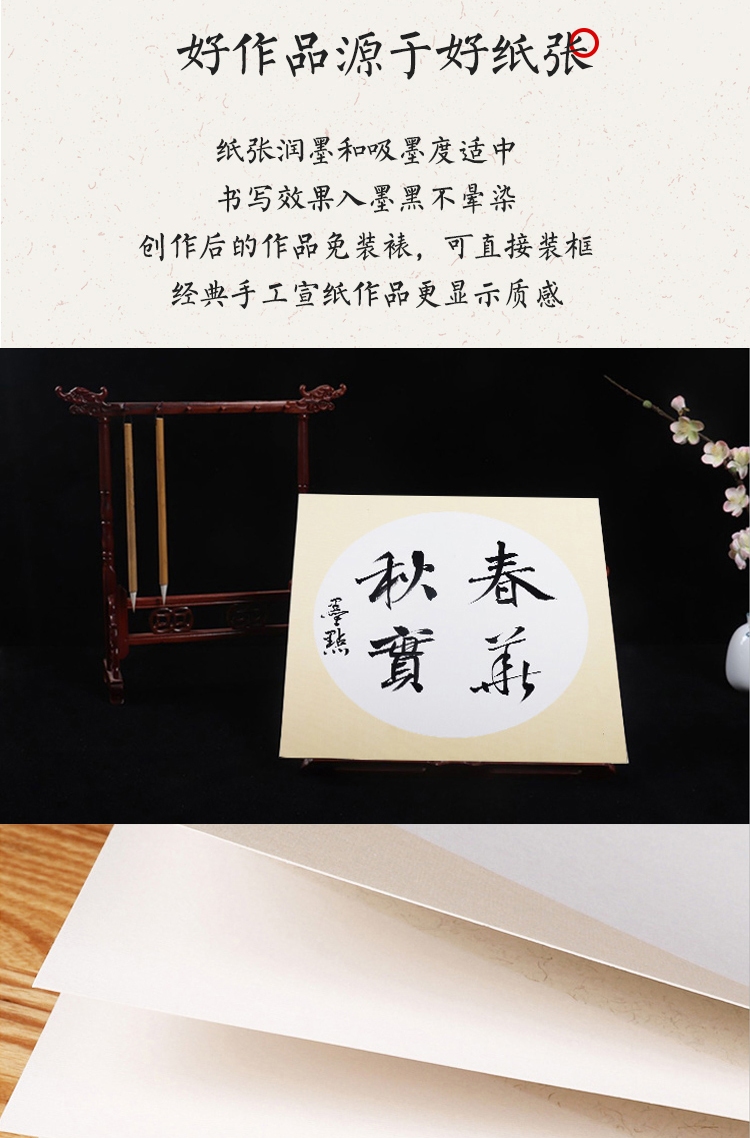 好作品源于好纸张
纸张润墨和吸墨度适中
书写效果入墨黑不晕染
创作后的作品免装裱，可直接装框
经典手工宣纸作品更显示质感
春華
秋實
墨點